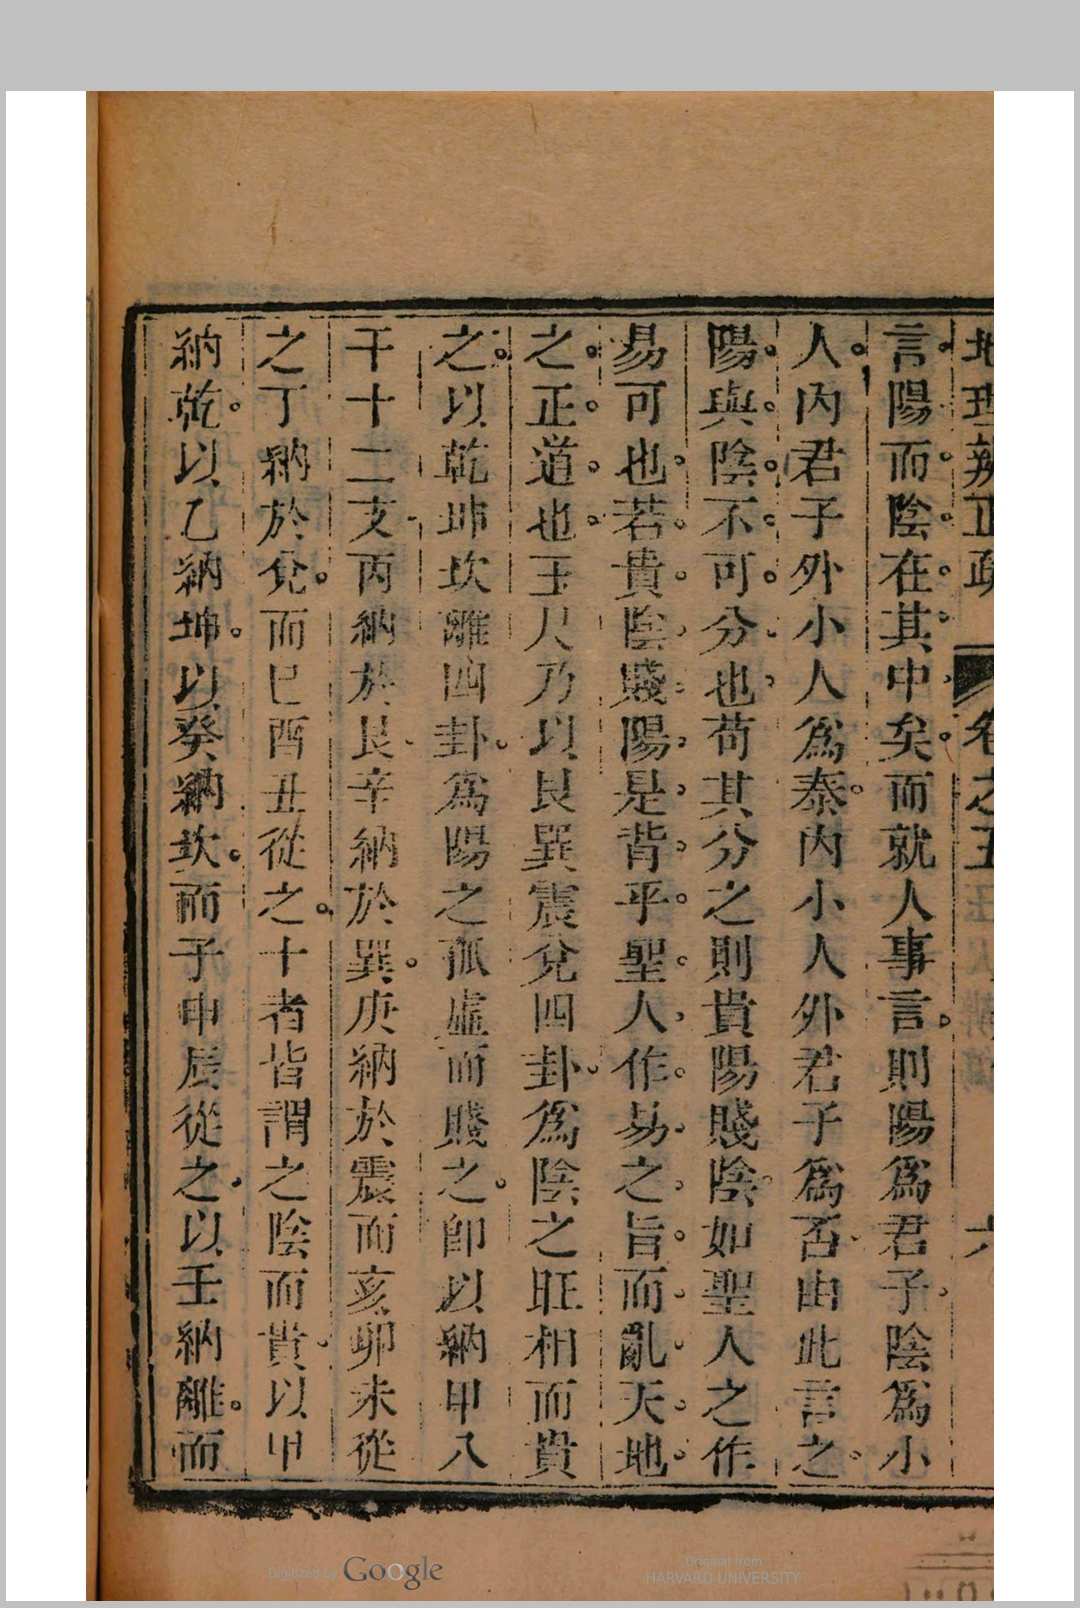 地理辨正疏 卷之五 六
言陽而陰在其中矣而就人事言則陽爲君子陰爲小
人內君子外小人爲泰內小人外君子爲否由此言之
陽與陰不可分也苟其分之則貴陽賤陰如聖人之作
易可也若貴陰賤陽是背乎聖人作易之旨而亂天地
之正道也玉尺乃以艮巽震兌四卦爲陰之旺相而貴
之以乾坤坎離四卦爲陽之孤虛而賤之卽以納甲八
干十二支丙納於艮辛納於巽庚納於震而亥卯未從
之丁納於兌而巳酉丑從之十者皆謂之陰而貴以甲
納乾以乙納坤以癸納坎而子申辰從之以壬納離而
Digitized by Google
Original from
HARVARD UNIVERSITY